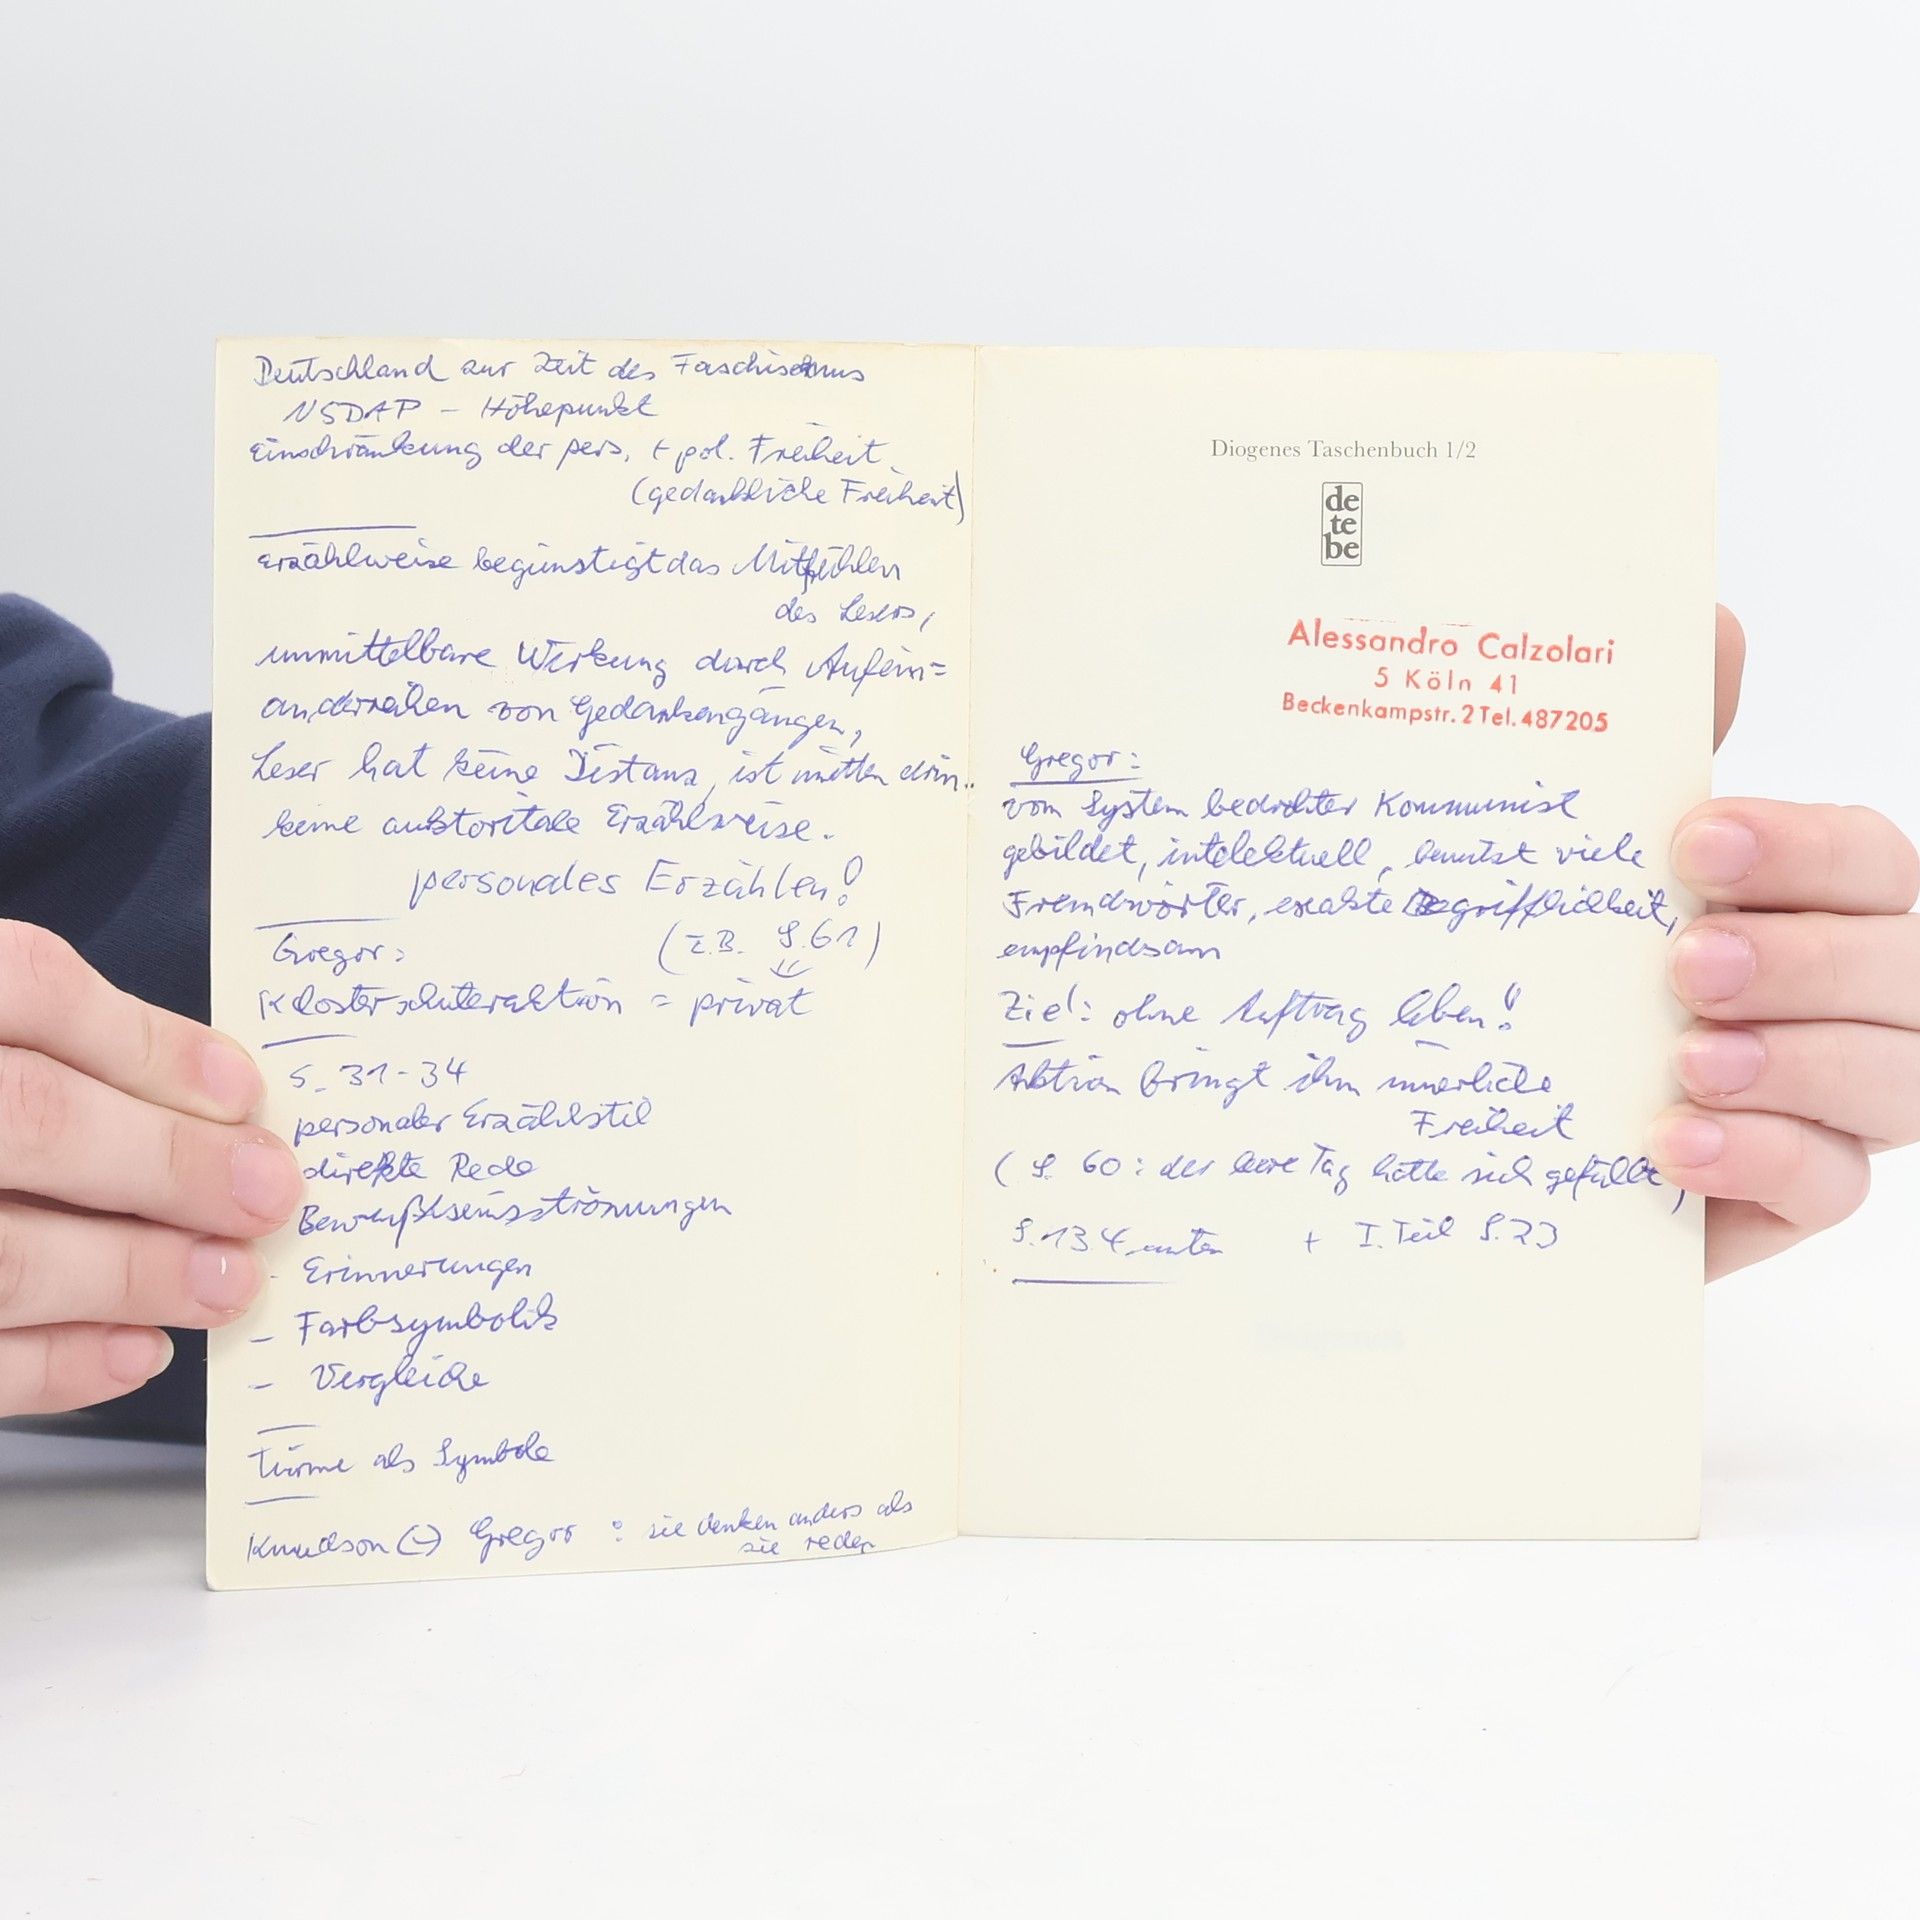 Deutschland zur Zeit des Faschismus
NSDAP – Höhepunkt
Einschränkung der pers. + pol. Freiheit
(gedankliche Freiheit)
Erzählweise begünstigt das Mitfühlen
des Lesers,
unmittelbare Wirkung durch Aufein=
anderreihen von Gedankengängen,
Leser hat keine Distanz, ist mitten drin..
keine auktoritale Erzählweise.
personales Erzählen!
Gregor: (z.B. S. 61)
Klosterschüleraktion = privat
S. 31-34
personaler Erzählstil
direkte Rede
Bewußtseinsströmungen
- Erinnerungen
– Farbsymbolik
– Vergleiche
Türme als Symbole
Knudson (-) Gregor : sie denken anders als
sie reden
Diogenes Taschenbuch 1/2
de
te
be
Alessandro Calzolari
5 Köln 41
Beckenkampstr. 2 Tel. 487205
Gregor:
vom System bedrohter Kommunist
gebildet, intelektuell, benutzt viele
Fremdwörter, exakte Begrifflichkeit,
empfindsam
Ziel: ohne Auftrag leben!
Aktion bringt ihm innerliche
Freiheit
(S. 60: der leere Tag hatte sich gefüllt)
S. 134 unten + I. Teil S. 23